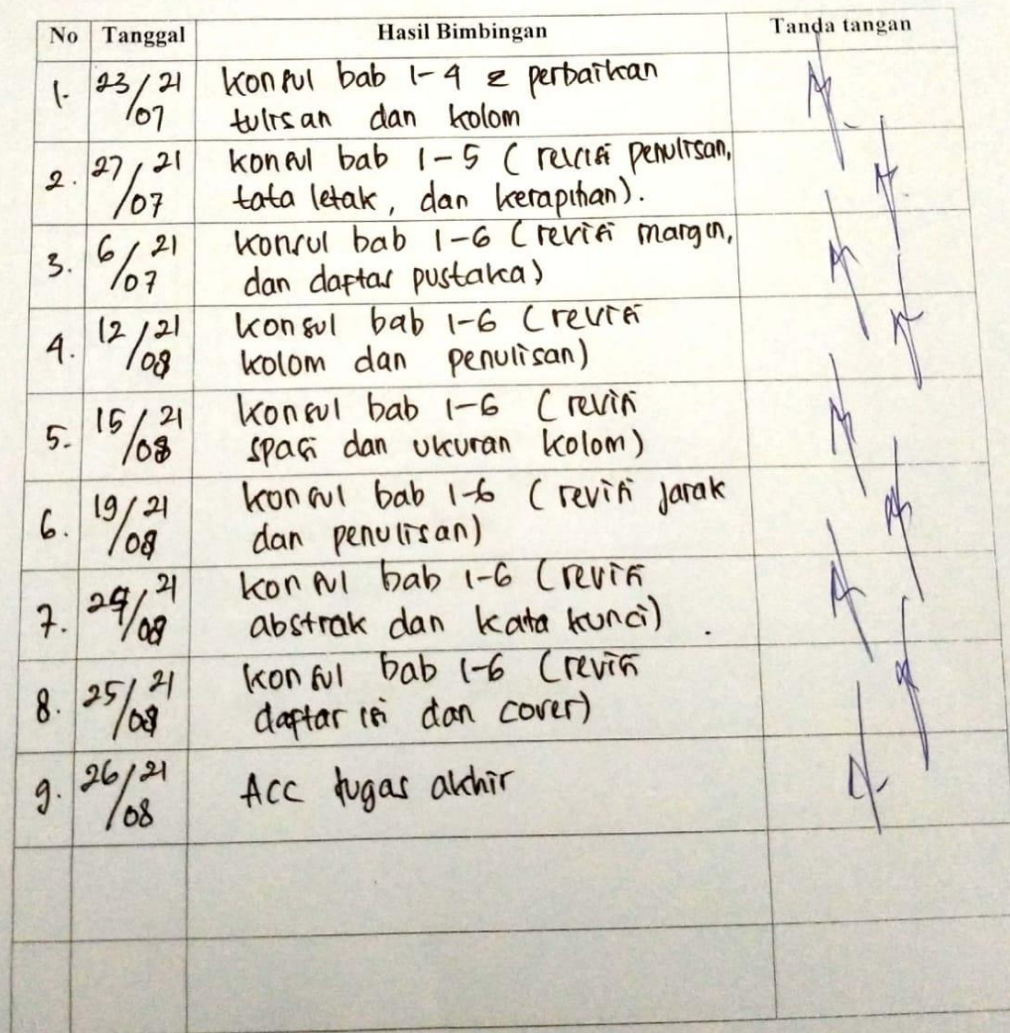 No Tanggal Hasil Bimbingan Tanda tangan
1. 23/07 21 konsul bab 1-4 & perbaikan
tulisan dan kolom
2. 27/07 21 konsul bab 1-5 (revisi penulisan,
tata letak, dan kerapihan).
3. 6/07 21 konsul bab 1-6 (revisi margin,
dan daftar pustaka)
4. 12/08 21 konsul bab 1-6 (revisi
kolom dan penulisan)
5. 15/08 21 konsul bab 1-6 (revisi
spasi dan ukuran kolom)
6. 19/08 21 konsul bab 1-6 (revisi jarak
dan penulisan)
7. 24/08 21 konsul bab 1-6 (revisi
abstrak dan kata kunci)
8. 25/08 21 konsul bab 1-6 (revisi
daftar isi dan cover)
9. 26/08 21 ACC tugas akhir